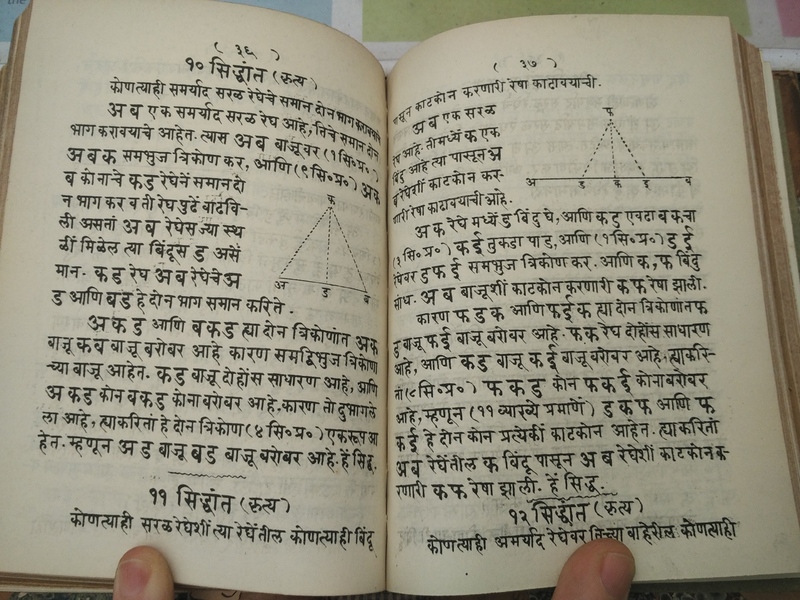 ( ३६ )
१० सिद्धांत (कृत्य)
कोणत्याही समर्याद सरळ रेघेचे समान दोन भाग करावयाचे
अ ब एक समर्याद सरळ रेघ आहे, तिचे समान दोन
भाग करावयाचे आहेत. त्यास अ ब बाजूवर (१ सि॰ प्र॰)
अ ब क समभुज त्रिकोण कर, आणि (९ सि॰ प्र॰) अ क
ब कोनाचे क ड रेघेनें समान दो
न भाग कर व ती रेघ पुढें वाढवि-
ली असतां अ ब रेघेस ज्या स्थ
ळीं मिळेल त्या बिंदूस ड असें
मान. क ड रेघ अ ब रेघेचे अ
ड आणि ब ड हे दोन भाग समान करिते.
क
अ
ड
ब
अ क ड आणि ब क ड ह्या दोन त्रिकोणांत अ क
बाजू क ब बाजू बरोबर आहे कारण समद्विभुज त्रिकोणा
च्या बाजू आहेत. क ड बाजू दोहोंस साधारण आहे, आणि
अ क ड कोन ब क ड कोना बरोबर आहे, कारण तो दुभागले
ला आहे, ह्याकरितां हे दोन त्रिकोण (४ सि॰ प्र॰) एकरूप आ
हेत. म्हणून अ ड बाजू ब ड बाजू बरोबर आहे. हें सिद्ध.
११ सिद्धांत (कृत्य)
कोणत्याही सरळ रेघेशीं त्या रेघेंतील कोणत्याही बिंदू
( ३७ )
पासून काटकोन करणारी रेषा काढावयाची.
अ ब एक सरळ
रेघ आहे. तीमध्यें क एक
बिंदु आहे त्या पासून अ
ब रेघेशीं काटकोन कर-
णारी रेघा काढावयाची आहे.
फ
अ
ड
क
ई
ब
अ क रेघे मध्यें ड बिंदु घे, आणि क ड एवढा ब क चा
(३ सि॰ प्र॰) क ई तुकडा पाड, आणि (१ सि॰ प्र॰) ड ई
रेघेवर ड फ ई समभुज त्रिकोण कर. आणि क, फ बिंदु
सांध. अ ब बाजूशीं काटकोन करणारी क फ रेघा झाली.
कारण फ ड क आणि फ ई क ह्या दोन त्रिकोणांत फ
ड बाजू फ ई बाजू बरोबर आहे. फ क रेघ दोहोंस साधारण
आहे, आणि क ड बाजू क ई बाजू बरोबर आहे. ह्याकरि-
तां (८ सि॰ प्र॰) फ क ड कोन फ क ई कोना बरोबर
आहे, म्हणून (११ व्याख्ये प्रमाणें) ड क फ आणि फ
क ई हे दोन कोन प्रत्येकीं काटकोन आहेत. ह्या करितां
अ ब रेघेंतील क बिंदू पासून अ ब रेघेशीं काटकोन क-
रणारी क फ रेषा झाली. हें सिद्ध.
१२ सिद्धांत (कृत्य)
कोणत्याही अमर्याद रेघेवर तिच्या बाहेरील कोणत्याही